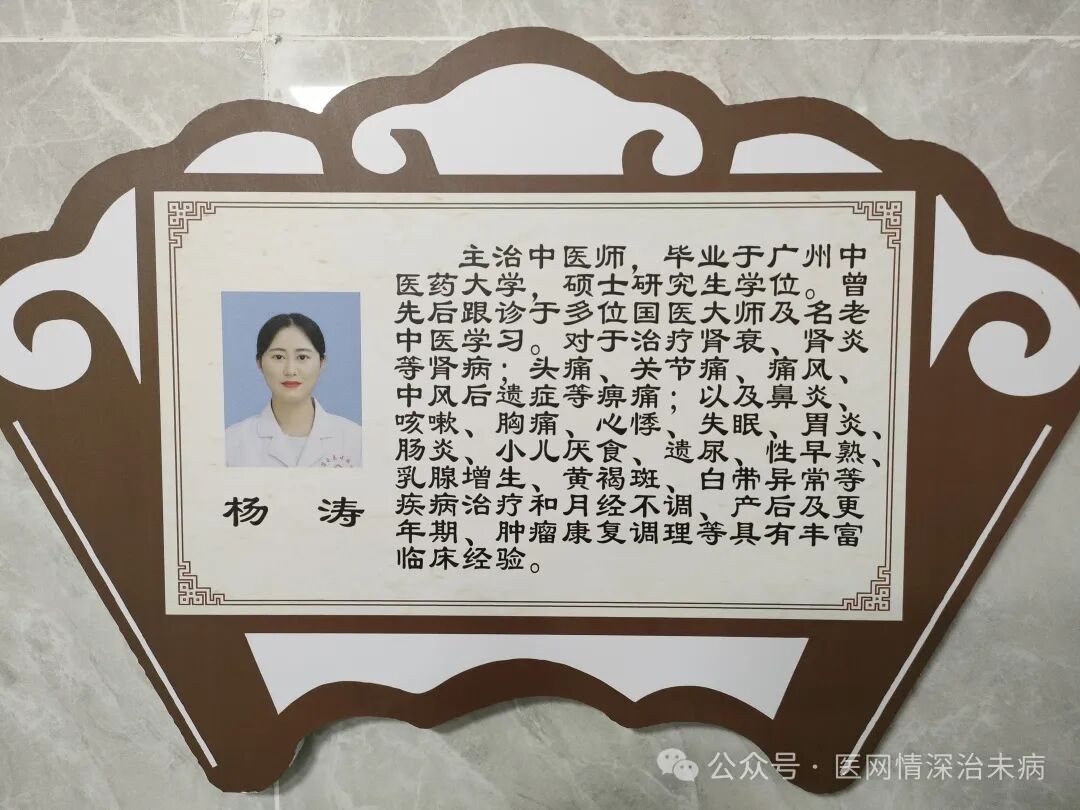 主治中医师，毕业于广州中
医药大学，硕士研究生学位。曾
先后跟诊于多位国医大师及名老
中医学习。对于治疗肾衰、肾炎
等肾病；头痛、关节痛、痛风、
中风后遗症等痹痛；以及鼻炎、
咳嗽、胸痛、心悸、失眠、胃炎、
肠炎、小儿厌食、遗尿、性早熟、
乳腺增生、黄褐斑、白带异常等
疾病治疗和月经不调、产后及更
年期、肿瘤康复调理等具有丰富
临床经验。
杨 涛
公众号·医网情深治未病